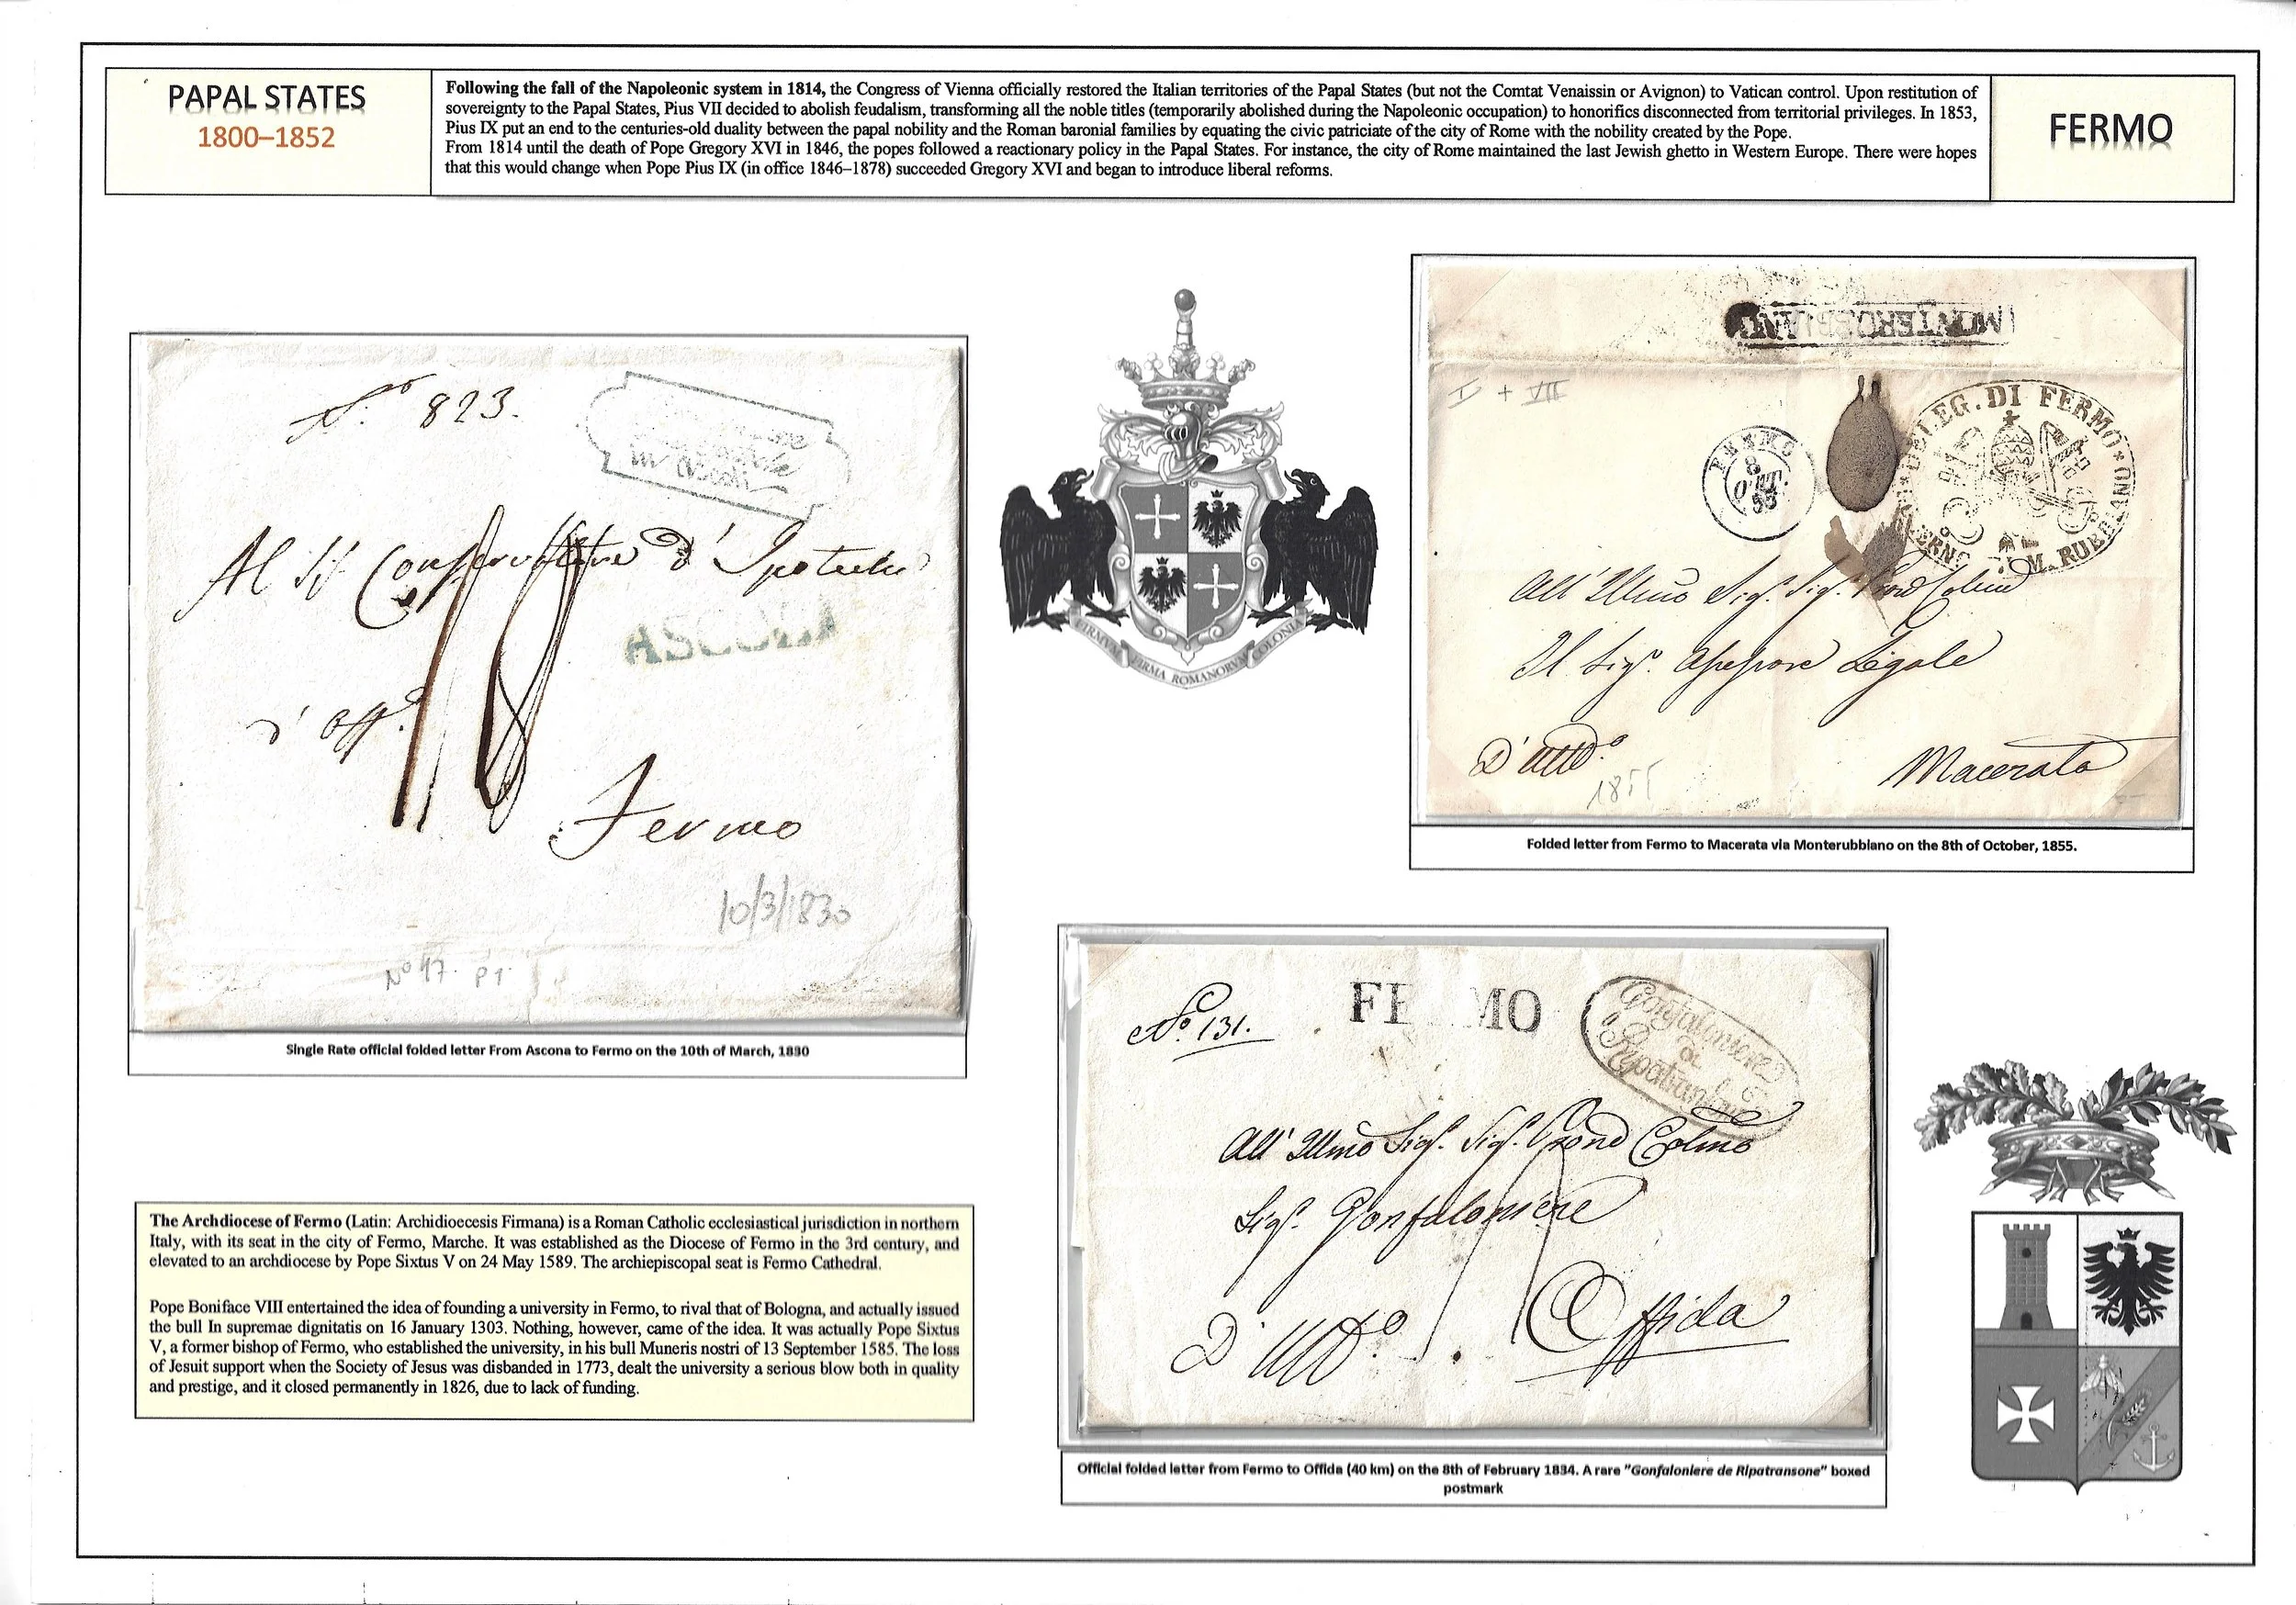 PAPAL STATES
1800–1852
Following the fall of the Napoleonic system in 1814, the Congress of Vienna officially restored the Italian territories of the Papal States (but not the Comtat Venaissin or Avignon) to Vatican control. Upon restitution of
sovereignty to the Papal States, Pius VII decided to abolish feudalism, transforming all the noble titles (temporarily abolished during the Napoleonic occupation) to honorifics disconnected from territorial privileges. In 1853,
Pius IX put an end to the centuries-old duality between the papal nobility and the Roman baronial families by equating the civic patriciate of the city of Rome with the nobility created by the Pope.
From 1814 until the death of Pope Gregory XVI in 1846, the popes followed a reactionary policy in the Papal States. For instance, the city of Rome maintained the last Jewish ghetto in Western Europe. There were hopes
that this would change when Pope Pius IX (in office 1846–1878) succeeded Gregory XVI and began to introduce liberal reforms.
FERMO
No 823.
in Ascoli
Al Sigr Conservatore d' Ipoteche
d' Off.o
Fermo
10/3/1830
No 47. P1.
Single Rate official folded letter From Ascona to Fermo on the 10th of March, 1830
FIRMVM FIRMA ROMANORVM COLONIA
MONTERUBBIANO
I + VII
FERMO
8
OTT.
55
DELEG. DI FERMO
M. RUBBIANO
All' Illmo Sigr. Sigr. Prone Colmo
Il Sigr. Assessore Legale
D' Uffo.
Macerata
1855
Folded letter from Fermo to Macerata via Monterubbiano on the 8th of October, 1855.
No 131.
FE MO
Gonfaloniere
di
Ripatransone
All' Illmo Sigr. Sigr. Prone Colmo
Sigr. Gonfaloniere
D' Uffo.
Offida
Official folded letter from Fermo to Offida (40 km) on the 8th of February 1834. A rare "Gonfaloniere de Ripatransone" boxed
postmark
The Archdiocese of Fermo (Latin: Archidioecesis Firmana) is a Roman Catholic ecclesiastical jurisdiction in northern
Italy, with its seat in the city of Fermo, Marche. It was established as the Diocese of Fermo in the 3rd century, and
elevated to an archdiocese by Pope Sixtus V on 24 May 1589. The archiepiscopal seat is Fermo Cathedral.
Pope Boniface VIII entertained the idea of founding a university in Fermo, to rival that of Bologna, and actually issued
the bull In supremae dignitatis on 16 January 1303. Nothing, however, came of the idea. It was actually Pope Sixtus
V, a former bishop of Fermo, who established the university, in his bull Muneris nostri of 13 September 1585. The loss
of Jesuit support when the Society of Jesus was disbanded in 1773, dealt the university a serious blow both in quality
and prestige, and it closed permanently in 1826, due to lack of funding.